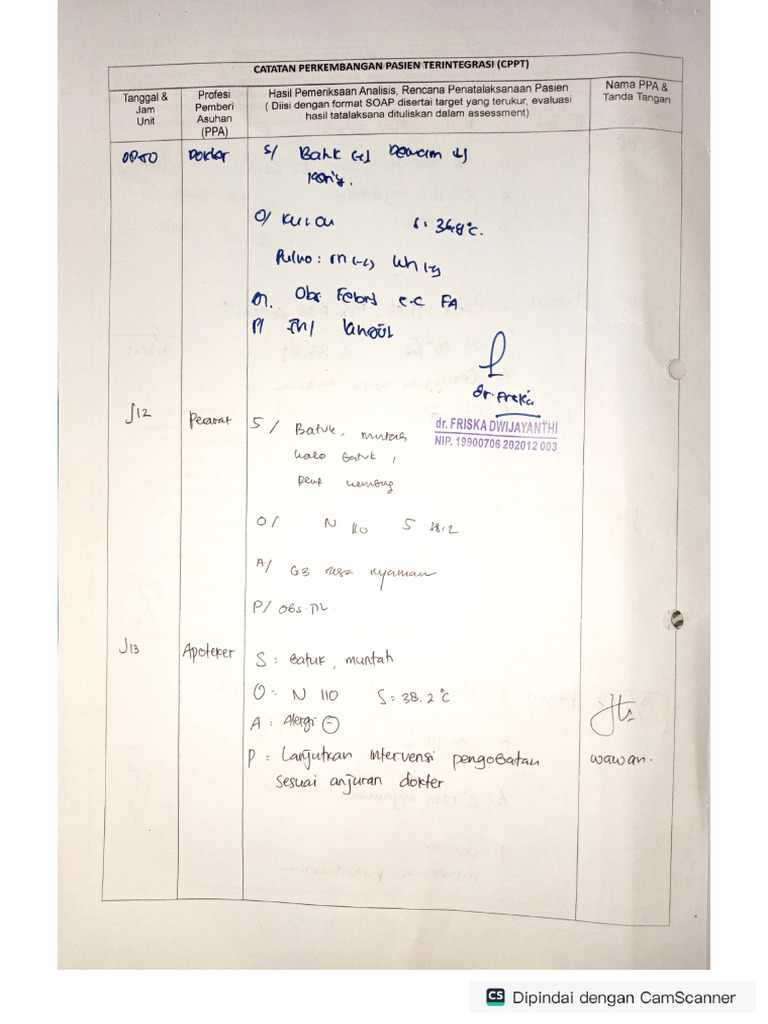 CATATAN PERKEMBANGAN PASIEN TERINTEGRASI (CPPT)
Tanggal & Jam Unit
Profesi Pemberi Asuhan (PPA)
Hasil Pemeriksaan Analisis, Rencana Penatalaksanaan Pasien
( Diisi dengan format SOAP disertai target yang terukur, evaluasi
hasil tatalaksana dituliskan dalam assessment)
Nama PPA & Tanda Tangan
Dokter
S/ Batuk (+) Demam
O/ KU: CM S: 36,8°c.
Pulmo: Rh (-/-) Wh (-/-)
Obs Febris e.c
P/ lanjut
dr. Friska
dr. FRISKA DWIJAYANTHI
NIP. 19900706 202012 003
J12 Perawat S/ Batuk, muntah
kalo batuk,
perut kembung
O/ N 110 S 38,2
A/ G3 rasa nyaman
P/ Obs
J13 Apoteker S : Batuk, muntah
O = N 110 S = 38.2°C
A : Alergi (-)
P : Lanjutkan intervensi pengobatan
sesuai anjuran dokter
wawan.
CS Dipindai dengan CamScanner